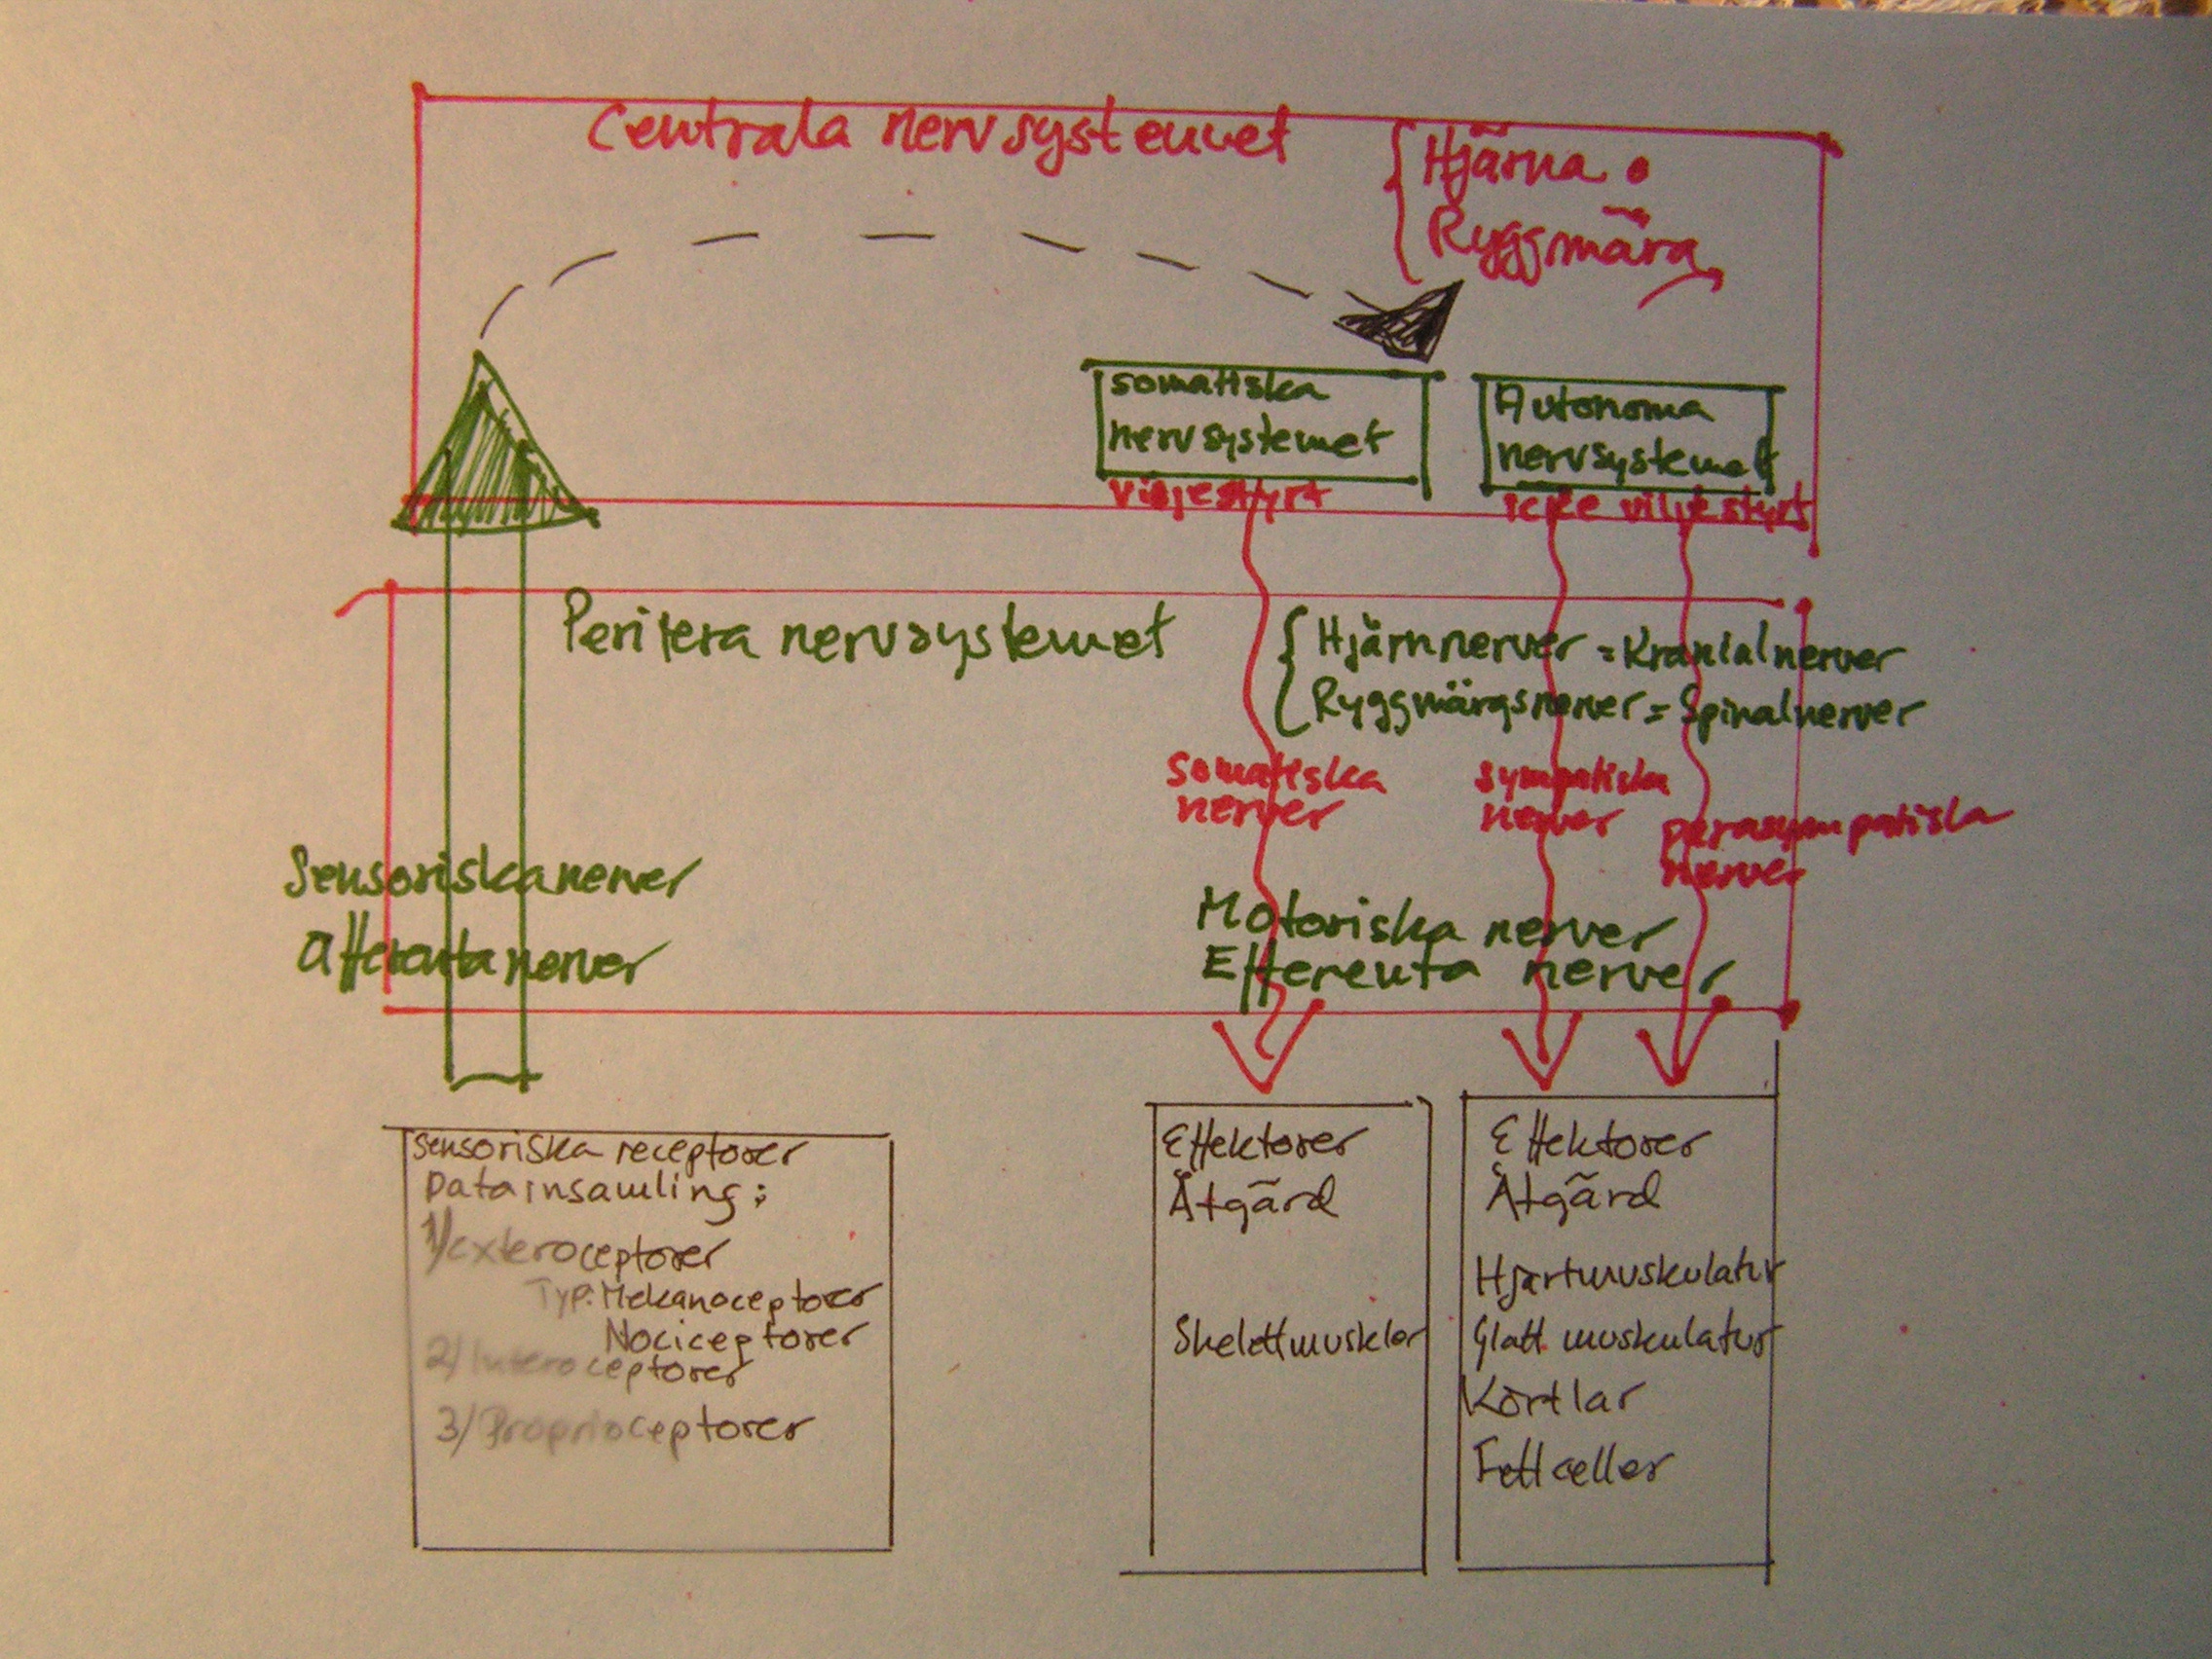 Centrala nervsystemet
Hjärna o
Ryggmärg
somatiska
nervsystemet
viljestyrt
Autonoma
nervsystemet
icke viljestyrt
Perifera nervsystemet
Hjärnnerver = Kranialnerver
Ryggmärgsnerver = Spinalnerver
Somatiska
nerver
sympatiska
nerver
parasympatiska
nerver
Sensoriska nerver
afferenta nerver
Motoriska nerver
Efferenta nerver
Sensoriska receptorer
Datainsamling:
1/exteroceptorer
Typ: Mekanoceptorer
Nociceptorer
2/Interoceptorer
3/Proprioceptorer
Effektorer
Åtgärd
Skelettmuskler
Effektorer
Åtgärd
Hjärtmuskulatur
Glatt muskulatur
Körtlar
Fettceller